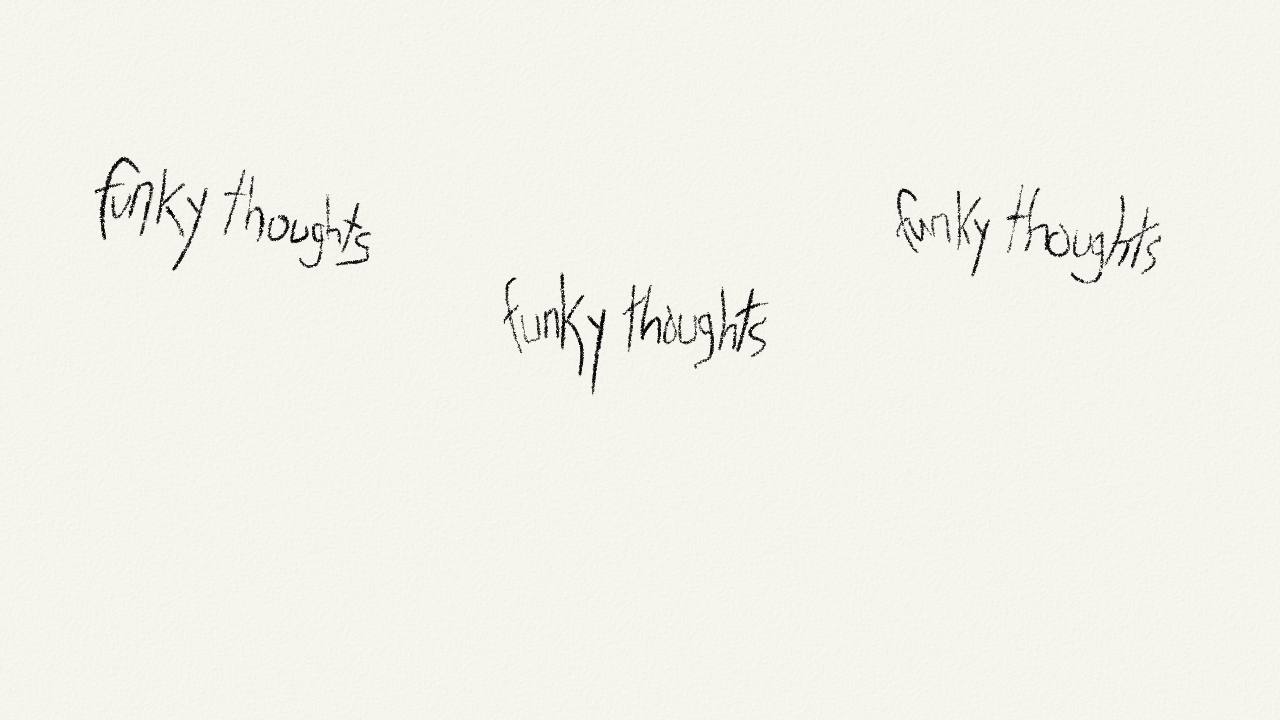 funky thoughts
funky thoughts
funky thoughts